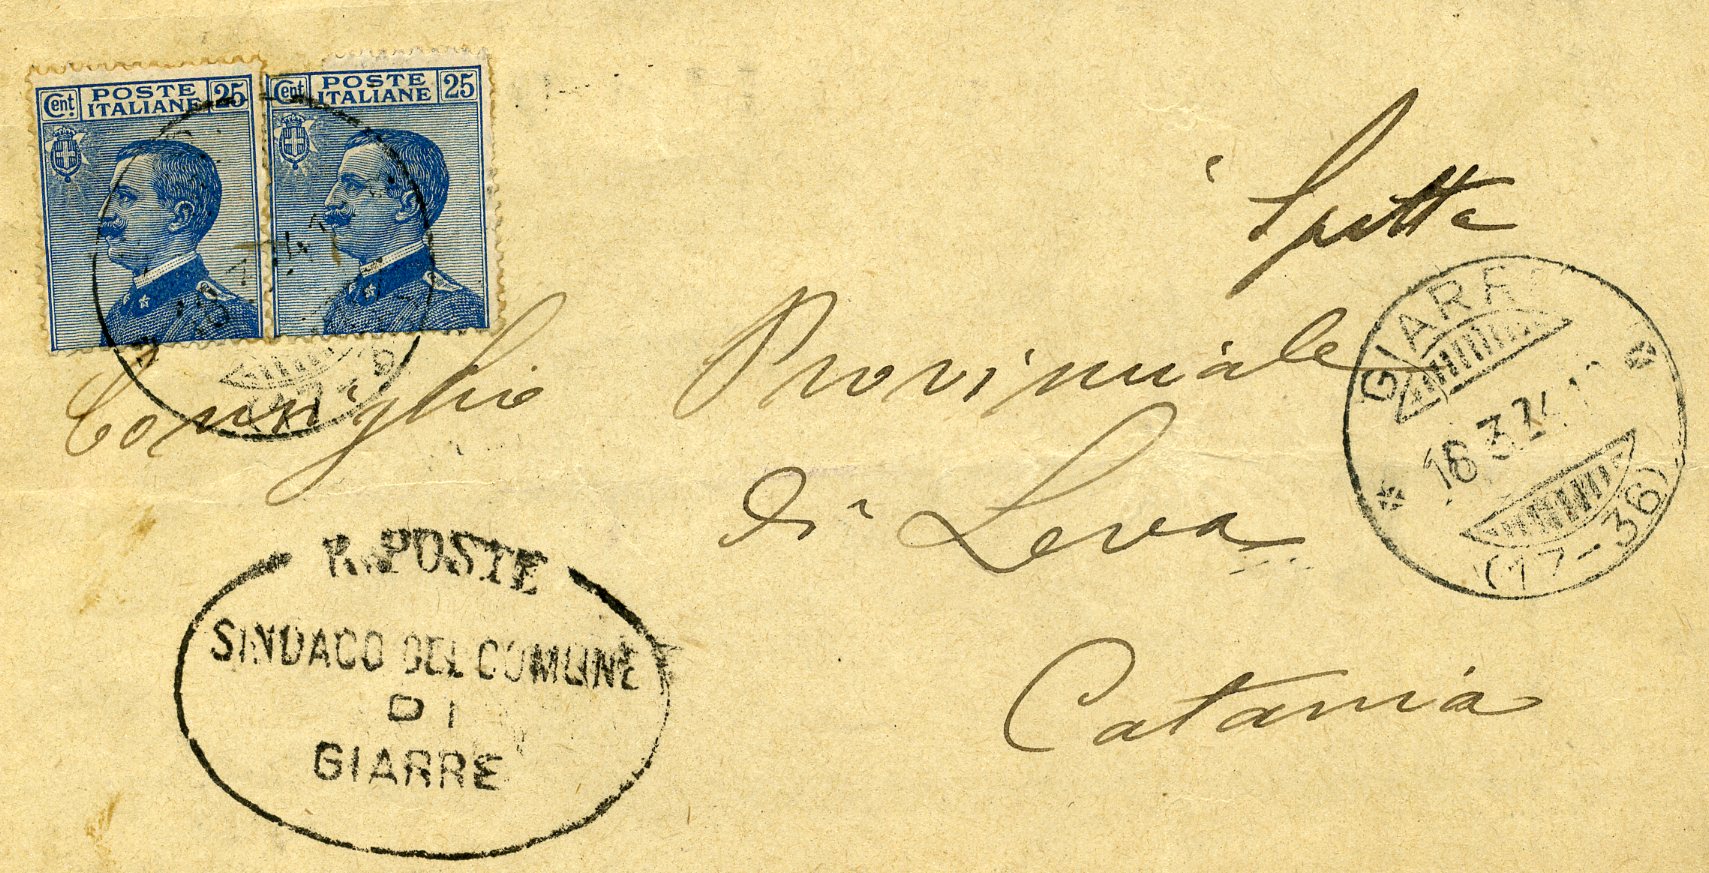 Cent. POSTE ITALIANE 25
Cent. POSTE ITALIANE 25
Spett.
Consiglio Provinciale
di Leva
Catania
GIARRE
18.3.24
(77-36)
R. POSTE
SINDACO DEL COMUNE
DI
GIARRE